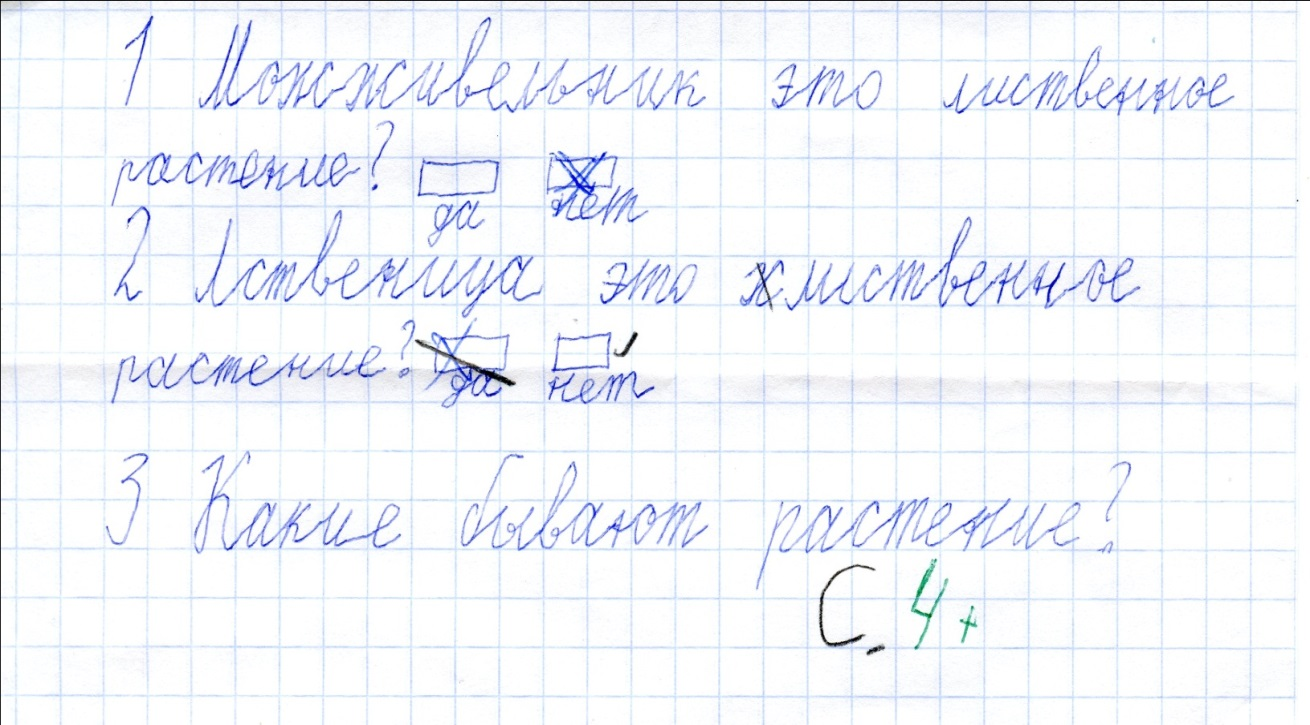 1 Можживельник это лиственное
растение?
да нет
2 Лственица это лиственное
растение?
да нет
3 Какие бывают растение?
С. 4+